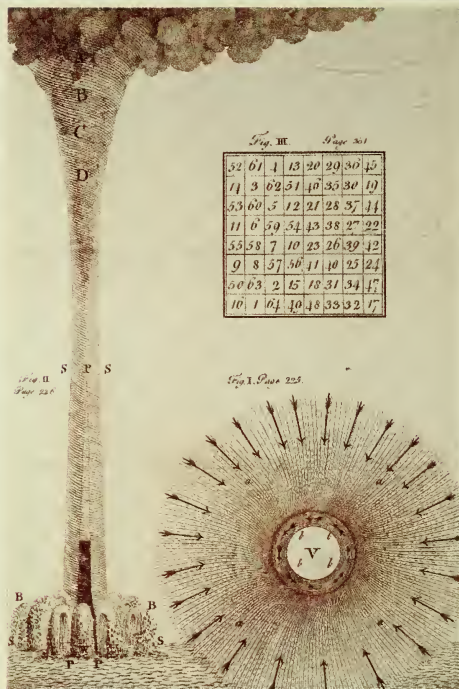 A
B
C
D
Fig. III Page
52 61 4 13 20 29 36 45
14 3 62 51 46 35 30 19
53 60 5 12 21 28 37 44
11 6 59 54 43 38 27 22
55 58 7 10 23 26 39 42
9 8 57 56 41 40 25 24
50 63 2 15 18 31 34 47
16 1 64 49 48 33 32 17
S P S
Fig. II
Page 226
Fig. I. Page 225.
a a
b b
V
b b
a a
B B
S S
P P